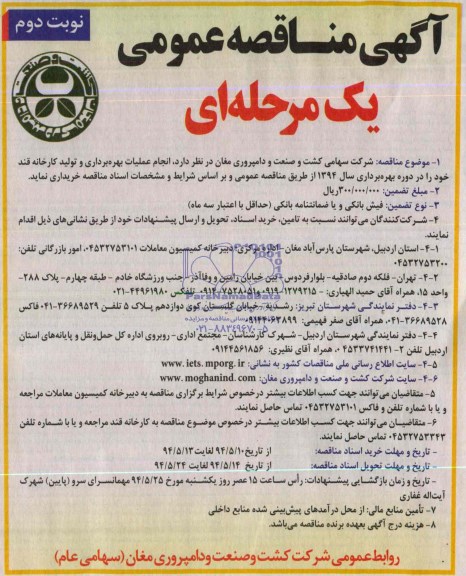 نوبت دوم
آگهی مناقصه عمومی
یک مرحله‌ای
۱- موضوع مناقصه: شرکت سهامی کشت و صنعت و دامپروری مغان در نظر دارد، انجام عملیات بهره‌برداری و تولید کارخانه قند
خود را در دوره بهره‌برداری سال ۱۳۹۴ از طریق مناقصه عمومی و بر اساس شرایط و مشخصات اسناد مناقصه خریداری نماید.
۲- مبلغ تضمین: ۳۰۰/۰۰۰/۰۰۰ریال
۳- نوع تضمین: فیش بانکی و یا ضمانتنامه بانکی (حداقل با اعتبار سه ماه)
۴- شرکت‌کنندگان می‌توانند نسبت به تامین، خرید اسناد، تحویل و ارسال پیشنهادات خود از طریق نشانی‌های ذیل اقدام
نمایند.
۴-۱- استان اردبیل، شهرستان پارس‌آباد مغان - اداره مرکزی دبیرخانه کمیسیون معاملات ۰۴۵۳۲۷۵۳۱۰۱ امور بازرگانی تلفن:
۰۴۵۳۲۷۵۳۲۰۰
۴-۲- تهران- فلکه دوم صادقیه- بلوار فردوس - بین خیابان رامین و وفاآذر - جنب ورزشگاه خادم - طبقه چهارم- پلاک ۲۸۸-
واحد ۱۵، همراه آقای حمید الهیاری: ۰۹۱۹۰۱۲۷۹۲۱۵ - ۰۹۱۴۰۷۵۲۸۰۵۱ تلفکس ۴۴۹۶۱۹۸۰-۰۲۱
۴-۳- دفتر نمایندگی شهرستان تبریز: رشدیه- خیابان گلستان کوی دوازدهم پلاک ۵ تلفن ۳۶۶۸۹۵۲۹-۰۴۱ فاکس
۳۶۶۸۹۵۲۸-۰۴۱، همراه آقای صفر فهیمی: ۰۹۱۴۴۰۶۳۸۹۹
۴-۴- دفتر نمایندگی شهرستان اردبیل- شهرک کارشناسان- مجتمع اداری- روبروی اداره کل حمل‌ونقل و پایانه‌های استان
اردبیل تلفن ۲- ۰۴۵۳۳۷۴۱۴۴۱ همراه آقای نظیری: ۰۹۱۴۴۵۶۱۸۵۶
۴-۵- سایت اطلاع رسانی ملی مناقصات کشور به نشانی: www.iets.mporg.ir
۴-۶- سایت شرکت کشت و صنعت و دامپروری مغان: www.moghanind.com
۵- متقاضیان می‌توانند جهت کسب اطلاعات بیشتر درخصوص شرایط برگزاری مناقصه به دبیرخانه کمیسیون معاملات مراجعه
و یا با شماره تلفن و فاکس ۰۴۵۳۲۷۵۳۱۰۱ تماس حاصل نمایند.
۶- متقاضیان می‌توانند جهت کسب اطلاعات بیشتر در خصوص موضوع مناقصه به کارخانه قند مراجعه و یا با شماره تلفن
۰۴۵۳۲۷۵۳۴۴۳ تماس حاصل نمایند.
- تاریخ و مهلت خرید اسناد مناقصه: از تاریخ ۹۴/۵/۱۰ لغایت ۹۴/۵/۱۳
- تاریخ و مهلت تحویل اسناد مناقصه: از تاریخ ۹۴/۵/۱۴ لغایت ۹۴/۵/۲۴
- تاریخ و زمان بازگشایی پیشنهادات: رأس ساعت ۱۵ عصر روز یکشنبه مورخ ۹۴/۵/۲۵ مهمانسرای سرو (پایین) شهرک
آیت‌اله غفاری
۷- تأمین منابع مالی: از محل درآمدهای پیش‌بینی شده منابع داخلی
۸- هزینه درج آگهی بعهده برنده مناقصه می‌باشد.
روابط عمومی شرکت کشت و صنعت و دامپروری مغان (سهامی عام)
ParsNamadData
۰۲۱-۸۸۳۴۹۶۷۰-۵